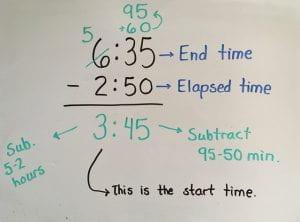 95
+60
5
6:35 → End time
- 2:50 → Elapsed time
3:45 → Subtract
95-50 min.
Sub.
5-2
hours
This is the start time.